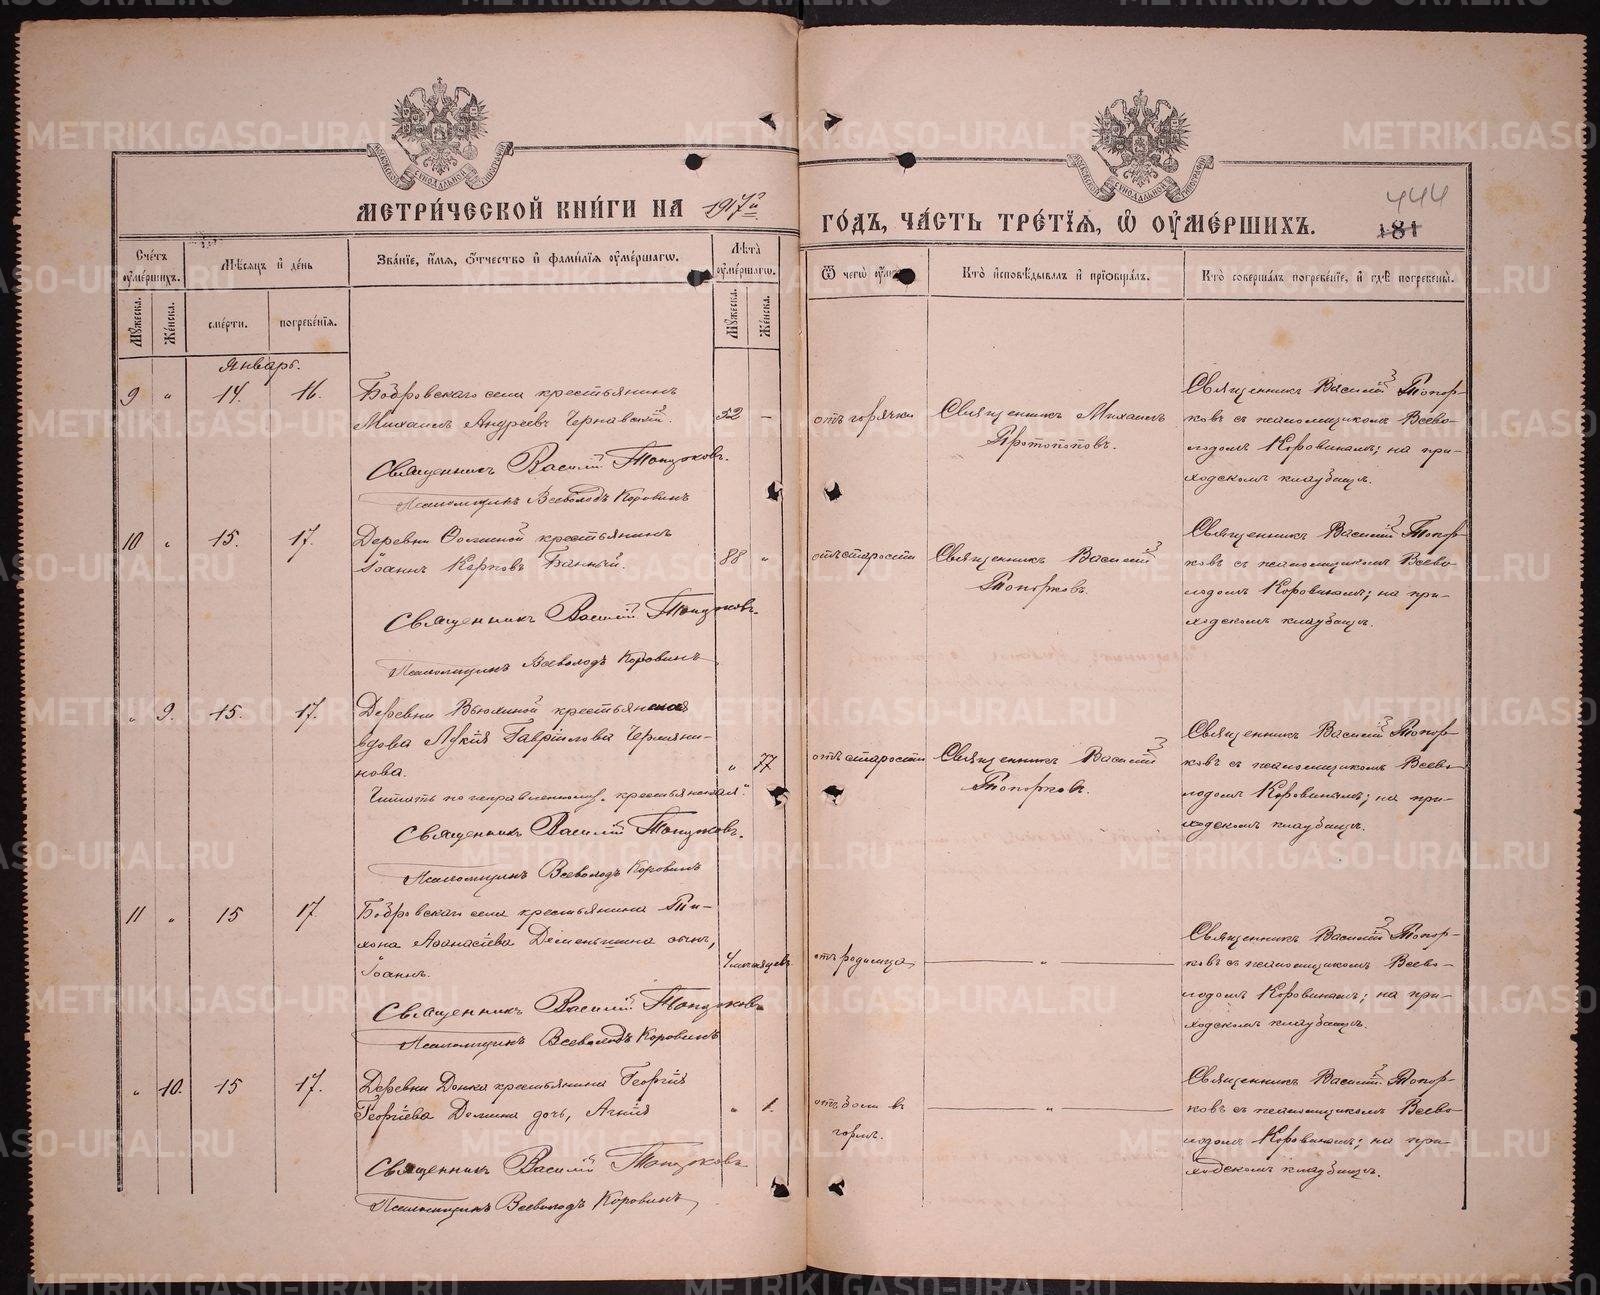 МЕТРИ́ЧЕСКОЙ КНИ́ГИ НА 1917й
ГО́ДЪ, ЧА́СТЬ ТРЕ́ТЇѦ, Ѡ҆ ОУ҆МЕ́РШИХЪ.
444
181
Сче́тъ оу҆ме́ршихъ.
Мѣ́сѧцъ и҆ де́нь
Зва́нїе, и҆́мѧ, ѻ҆́тчество и҆ фами́лїѧ оу҆ме́ршагѡ.
Лѣ́та оу҆ме́ршагѡ.
Кто̀ и҆сповѣ́дывалъ и҆ прїѡбща́лъ.
Кто̀ соверша́лъ погребе́нїе, и҆ гдѣ̀ погребены̀.
Мꙋ́жеска.
Же́нска.
сме́рти.
погребе́нїѧ.
Мꙋ́жеска.
Же́нска.
Январь.
9 „ 14. 16. Бобровскаго села крестьянинъ
Михаилъ Андреевъ Чернавскій. 52 —
Священникъ Василій Топорковъ.
Псаломщикъ Всеволодъ Коровинъ
отъ горячки
Священникъ Михаилъ
Протопоповъ.
Священникъ Василій Топор-
ковъ съ псаломщикомъ Всево-
лодомъ Коровинымъ; на при-
ходскомъ кладбищѣ.
10 „ 15. 17. Деревни крестьянинъ
Іоаннъ Карповъ 88 „
Священникъ Василій Топорковъ.
Псаломщикъ Всеволодъ Коровинъ
отъ старости
Священникъ Василій
Топорковъ.
Священникъ Василій Топор-
ковъ съ псаломщикомъ Всево-
лодомъ Коровинымъ; на при-
ходскомъ кладбищѣ.
„ 9. 15. 17. Деревни Вьюхиной крестьянская
вдова Лукія Гавріилова Чермяни-
нова. „ 77
Читать по исправленному: „крестьянская“.
Священникъ Василій Топорковъ.
Псаломщикъ Всеволодъ Коровинъ
отъ старости
Священникъ Василій
Топорковъ.
Священникъ Василій Топор-
ковъ съ псаломщикомъ Всево-
лодомъ Коровинымъ; на при-
ходскомъ кладбищѣ.
11 „ 15 17. Бобровскаго села крестьянина Ти-
хона Аѳанасіева Деменьшина сынъ,
Іоаннъ. 4 месяцевъ
Священникъ Василій Топорковъ
Псаломщикъ Всеволодъ Коровинъ
отъ родимца
„
Священникъ Василій Топор-
ковъ съ псаломщикомъ Всево-
лодомъ Коровинымъ; на при-
ходскомъ кладбищѣ.
„ 10. 15 17. Деревни крестьянина Георгія
Георгіева дочь, Агнія „ 1.
Священникъ Василій Топорковъ
Псаломщикъ Всеволодъ Коровинъ
отъ боли въ
горлѣ.
„
Священникъ Василій Топор-
ковъ съ псаломщикомъ Всево-
лодомъ Коровинымъ; на при-
ходскомъ кладбищѣ.
METRIKI.GASO-URAL.RU